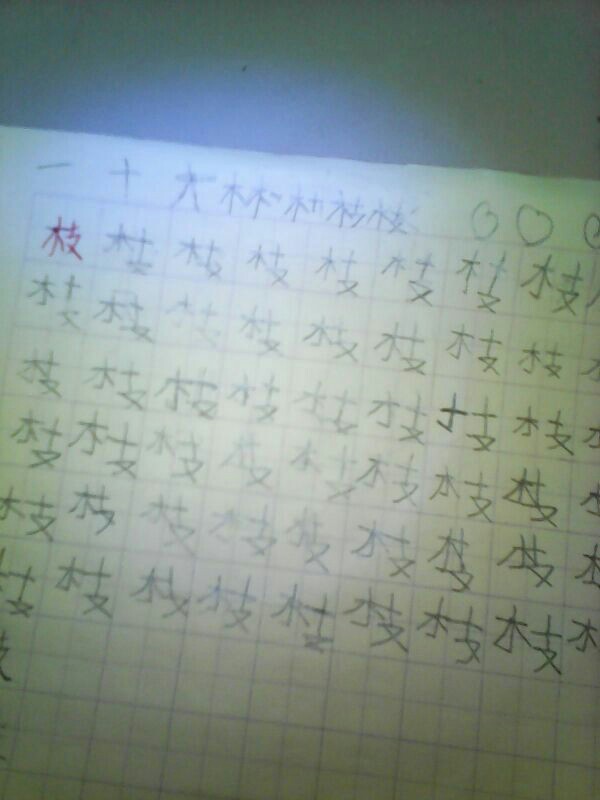 一 十 才 木 木 村 枝 枝
枝 枝 枝 枝 枝 枝 枝 枝
枝 枝 枝 枝 枝 枝 枝 枝
枝 枝 枝 枝 枝 枝 枝 枝
枝 枝 枝 枝 枝 枝 枝 枝
枝 枝 枝 枝 枝 枝 枝 枝
枝 枝 枝 枝 枝 枝 枝 枝